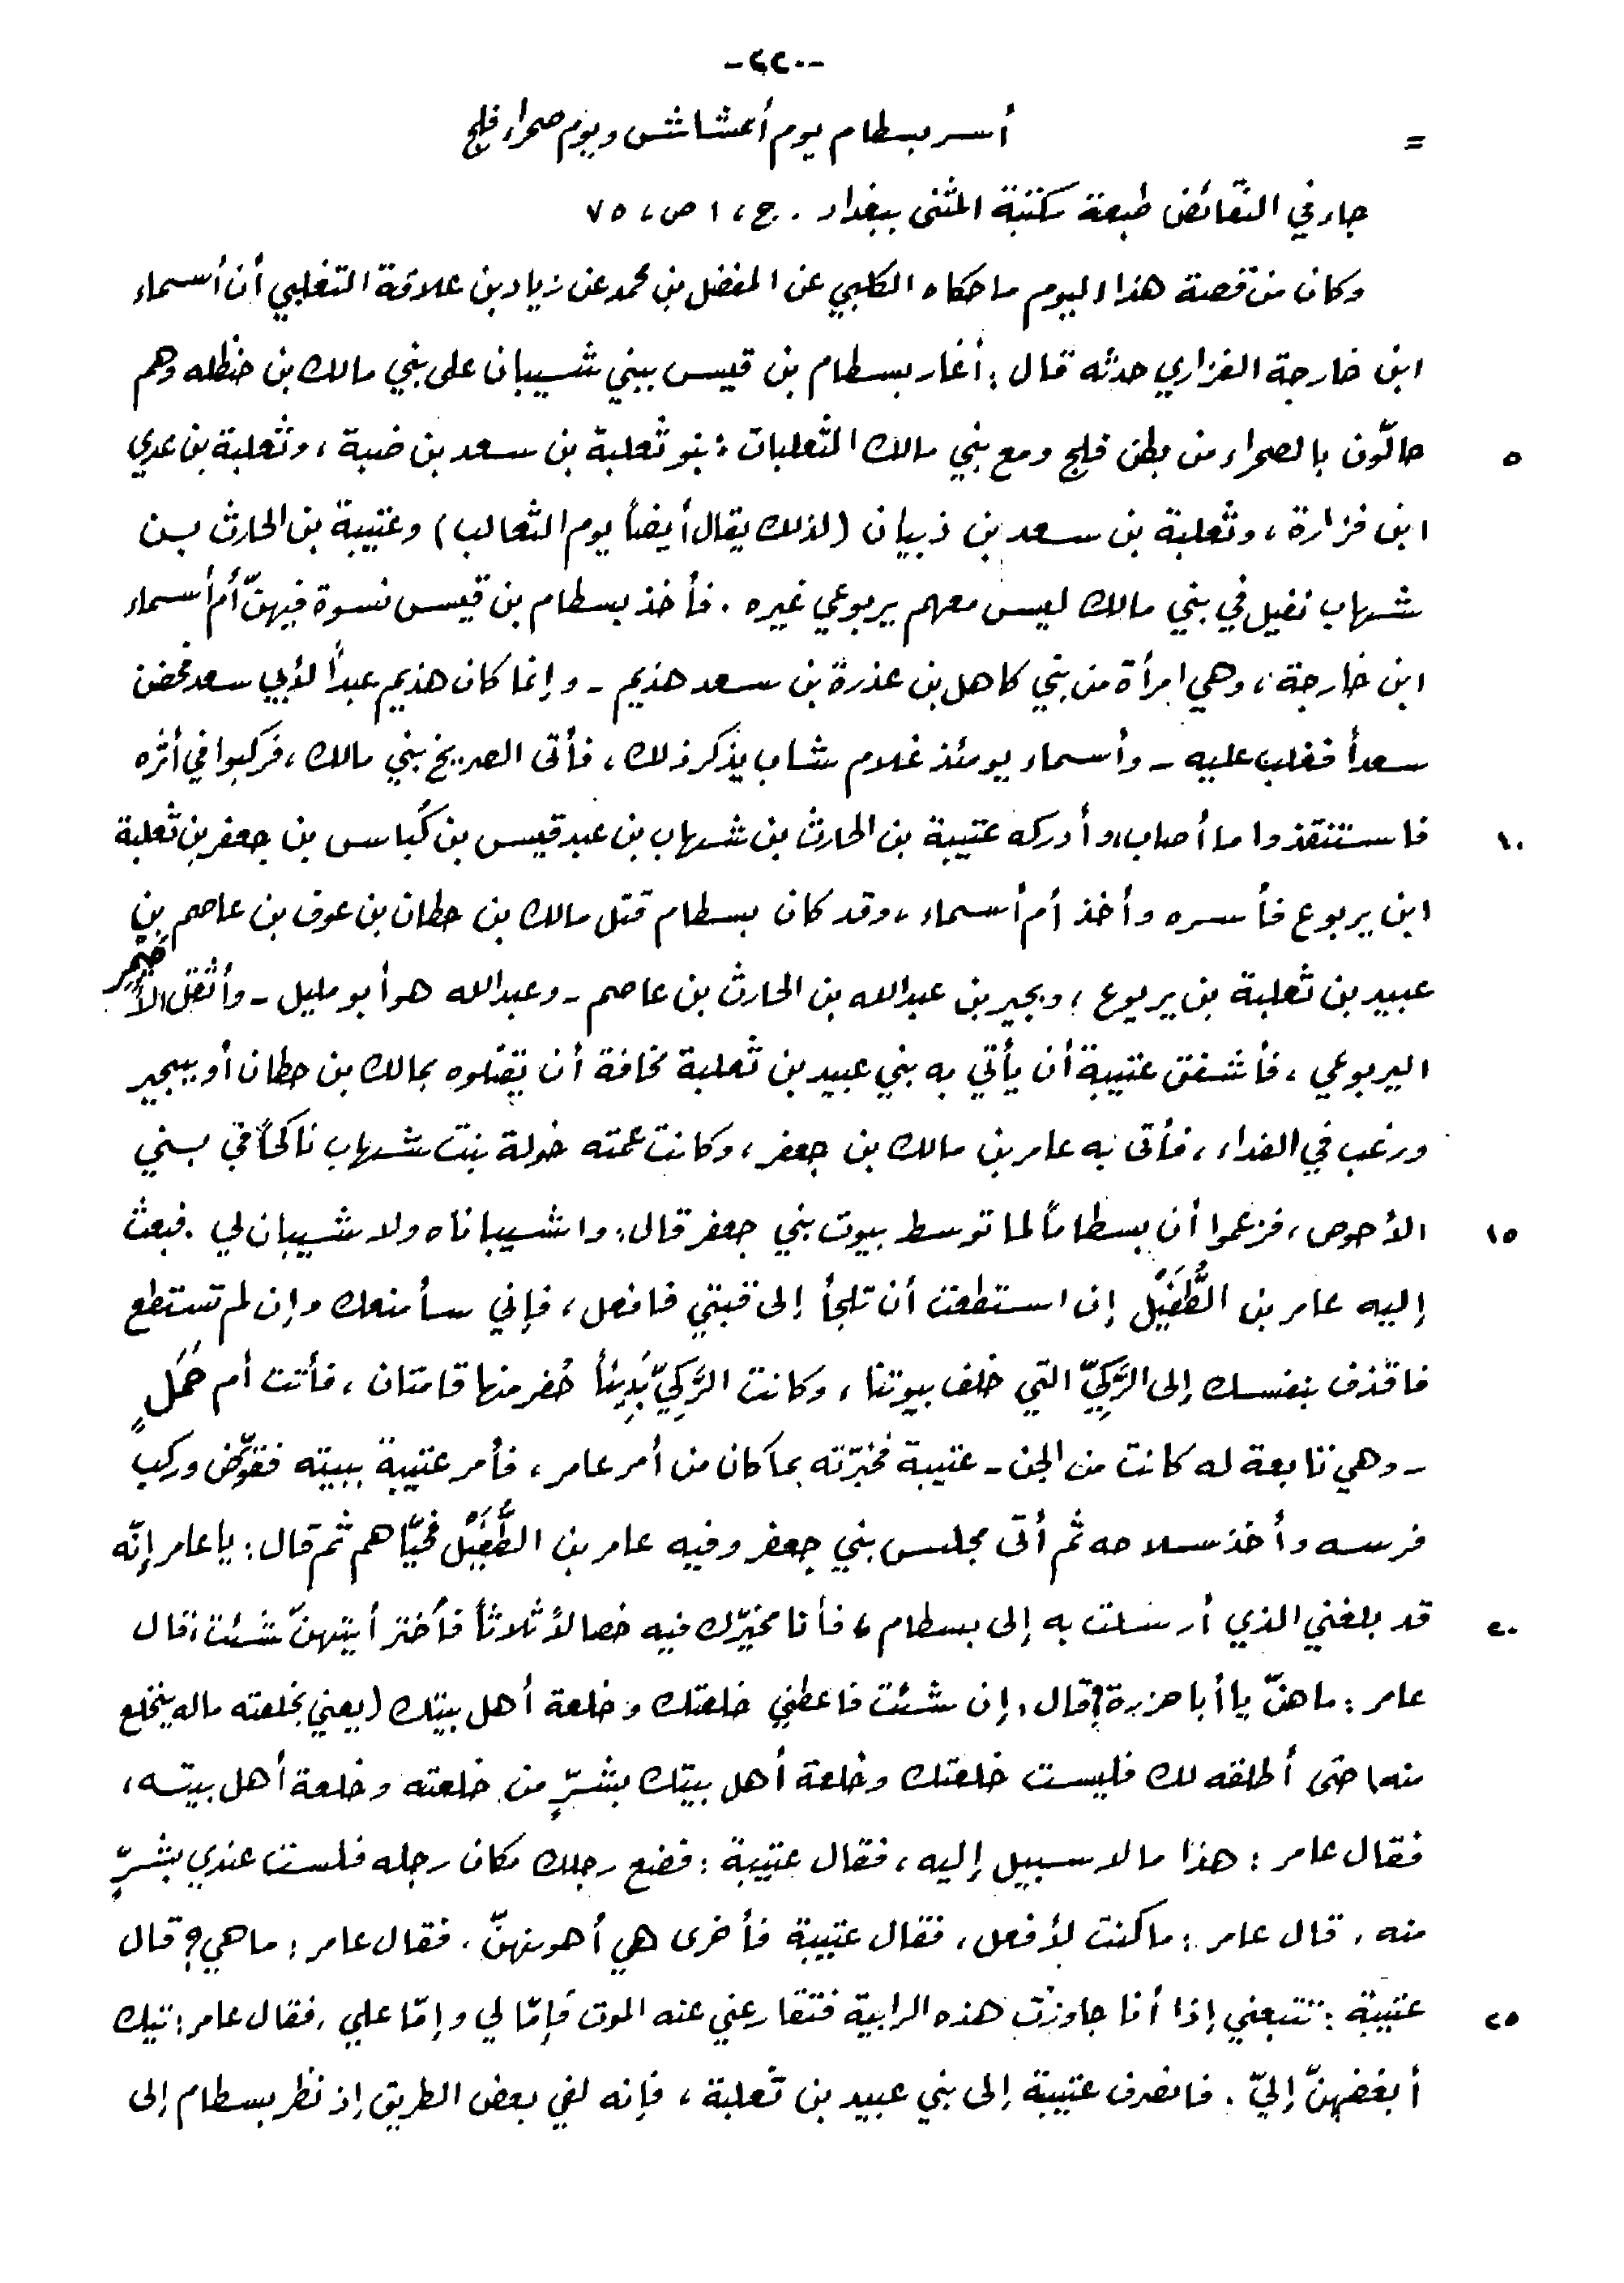 -٢٢٠-
= أسر بسطام يوم أعشاش ويوم صحراء فلج
جاء في النّقائض طبعة مكتبة المثنى ببغداد . ج ، ١ ص ، ٧٥
وكان من قصة هذا اليوم ما حكاه الكلبي عن المفضل بن محمد عن زياد بن علاقة التغلبي أن أسماء
ابن خارجة الفزاري حدثه قال : أغار بسطام بن قيس ببني شيبان على بني مالك بن حنظله وهم
٥ حالّون بالصحراء من بطن فلج ومع بني مالك الثعلبات : بنو ثعلبة بن سعد بن ضبة ، وثعلبة بن عدي
ابن فزارة ، وثعلبة بن سعد بن ذبيان (لذلك يقال أيضاً يوم الثعالب) وعتيبة بن الحارث بن
شهاب نفيل في بني مالك ليس معهم يربوعي غيره . فأخذ بسطام بن قيس نسوة فيهنّ أم أسماء
ابن خارجة ، وهي امرأة من بني كاهل بن عذرة بن سعد هذيم - وإنما كان هذيم عبداً لأبي سعد فحضن
سعداً فغلب عليه - وأسماء يومئذ غلام شاب يذكر ذلك ، فأتى الصريخ بني مالك ، فركبوا في أثره
١٠ فاستنقذوا ما أصاب، وأدركه عتيبة بن الحارث بن شهاب بن عبد قيس بن كُباس بن جعفر بن ثعلبة
ابن يربوع فأسره وأخذ أم أسماء ، وقد كان بسطام قتل مالك بن حطان بن عوف بن عاصم بن
عبيد بن ثعلبة بن يربوع ، وبجير بن عبدالله بن الحارث بن عاصم - وعبدالله هو أبو مليل - وأثقل الأُحَيْمِر
اليربوعي ، فأشفق عتيبة أن يأتي به بني عبيد بن ثعلبة مخافة أن يقتلوه بمالك بن حطان أو ببجير
ورغب في الفداء ، فأتى به عامر بن مالك بن جعفر ، وكانت عمته خولة بنت شهاب ناكحاً في بني
١٥ الأحوص ، فزعموا أن بسطاماً لما توسط بيوت بني جعفر قال : واشيباناه ولا شيبان لي . فبعث
إليه عامر بن الطُّفَيْل إن استطعت أن تلجأ إلى قبتي فافعل ، فإني سأمنعك وإن لم تستطع
فاقذف بنفسك إلى الرَّكِيّ التي خلف بيوتنا ، وكانت الرَّكِيّ بَدِيئاً حُفر منها قامتان ، فأتت أم حَمَلٍ
- وهي تابعة له كانت من الجن - عتيبة فخبّرته بما كان من أمر عامر ، فأمر عتيبة ببيته فقوّض وركب
فرسه وأخذ سلاحه ثم أتى مجلس بني جعفر وفيه عامر بن الطُّفَيْل فحيّاهم ثم قال : يا عامر إنّه
٢٠ قد بلغني الذي أرسلت به إلى بسطام ، فأنا مخيّرك فيه خصالاً ثلاثاً فأختر أيتهنّ شئت ، قال
عامر : ما هنّ يا أبا حزرة؟ قال : إن شئت فاعطني خلعتك وخلعة أهل بيتك (يعني بخلعته ماله ينخلع
منه) حتى أطلقه لك فليست خلعتك وخلعة أهل بيتك بشرّ من خلعته وخلعة أهل بيته ،
فقال عامر : هذا ما لا سبيل إليه ، فقال عتيبة : فضع رجلك مكان رجله فلست عندي بشرّ
منه . قال عامر : ما كنت لأفعل ، فقال عتيبة فأخرى هي أهونهنّ . فقال عامر : ما هي ؟ قال
٢٥ عتيبة : تتبعني إذا أنا جاوزت هذه الرابية فتقارعني عنه الموت فإمّا لي وإمّا علي . فقال عامر : تيك
أبغضهنّ إليّ . فانصرف عتيبة إلى بني عبيد بن ثعلبة ، فإنه لفي بعض الطريق إذ نظر بسطام إلى